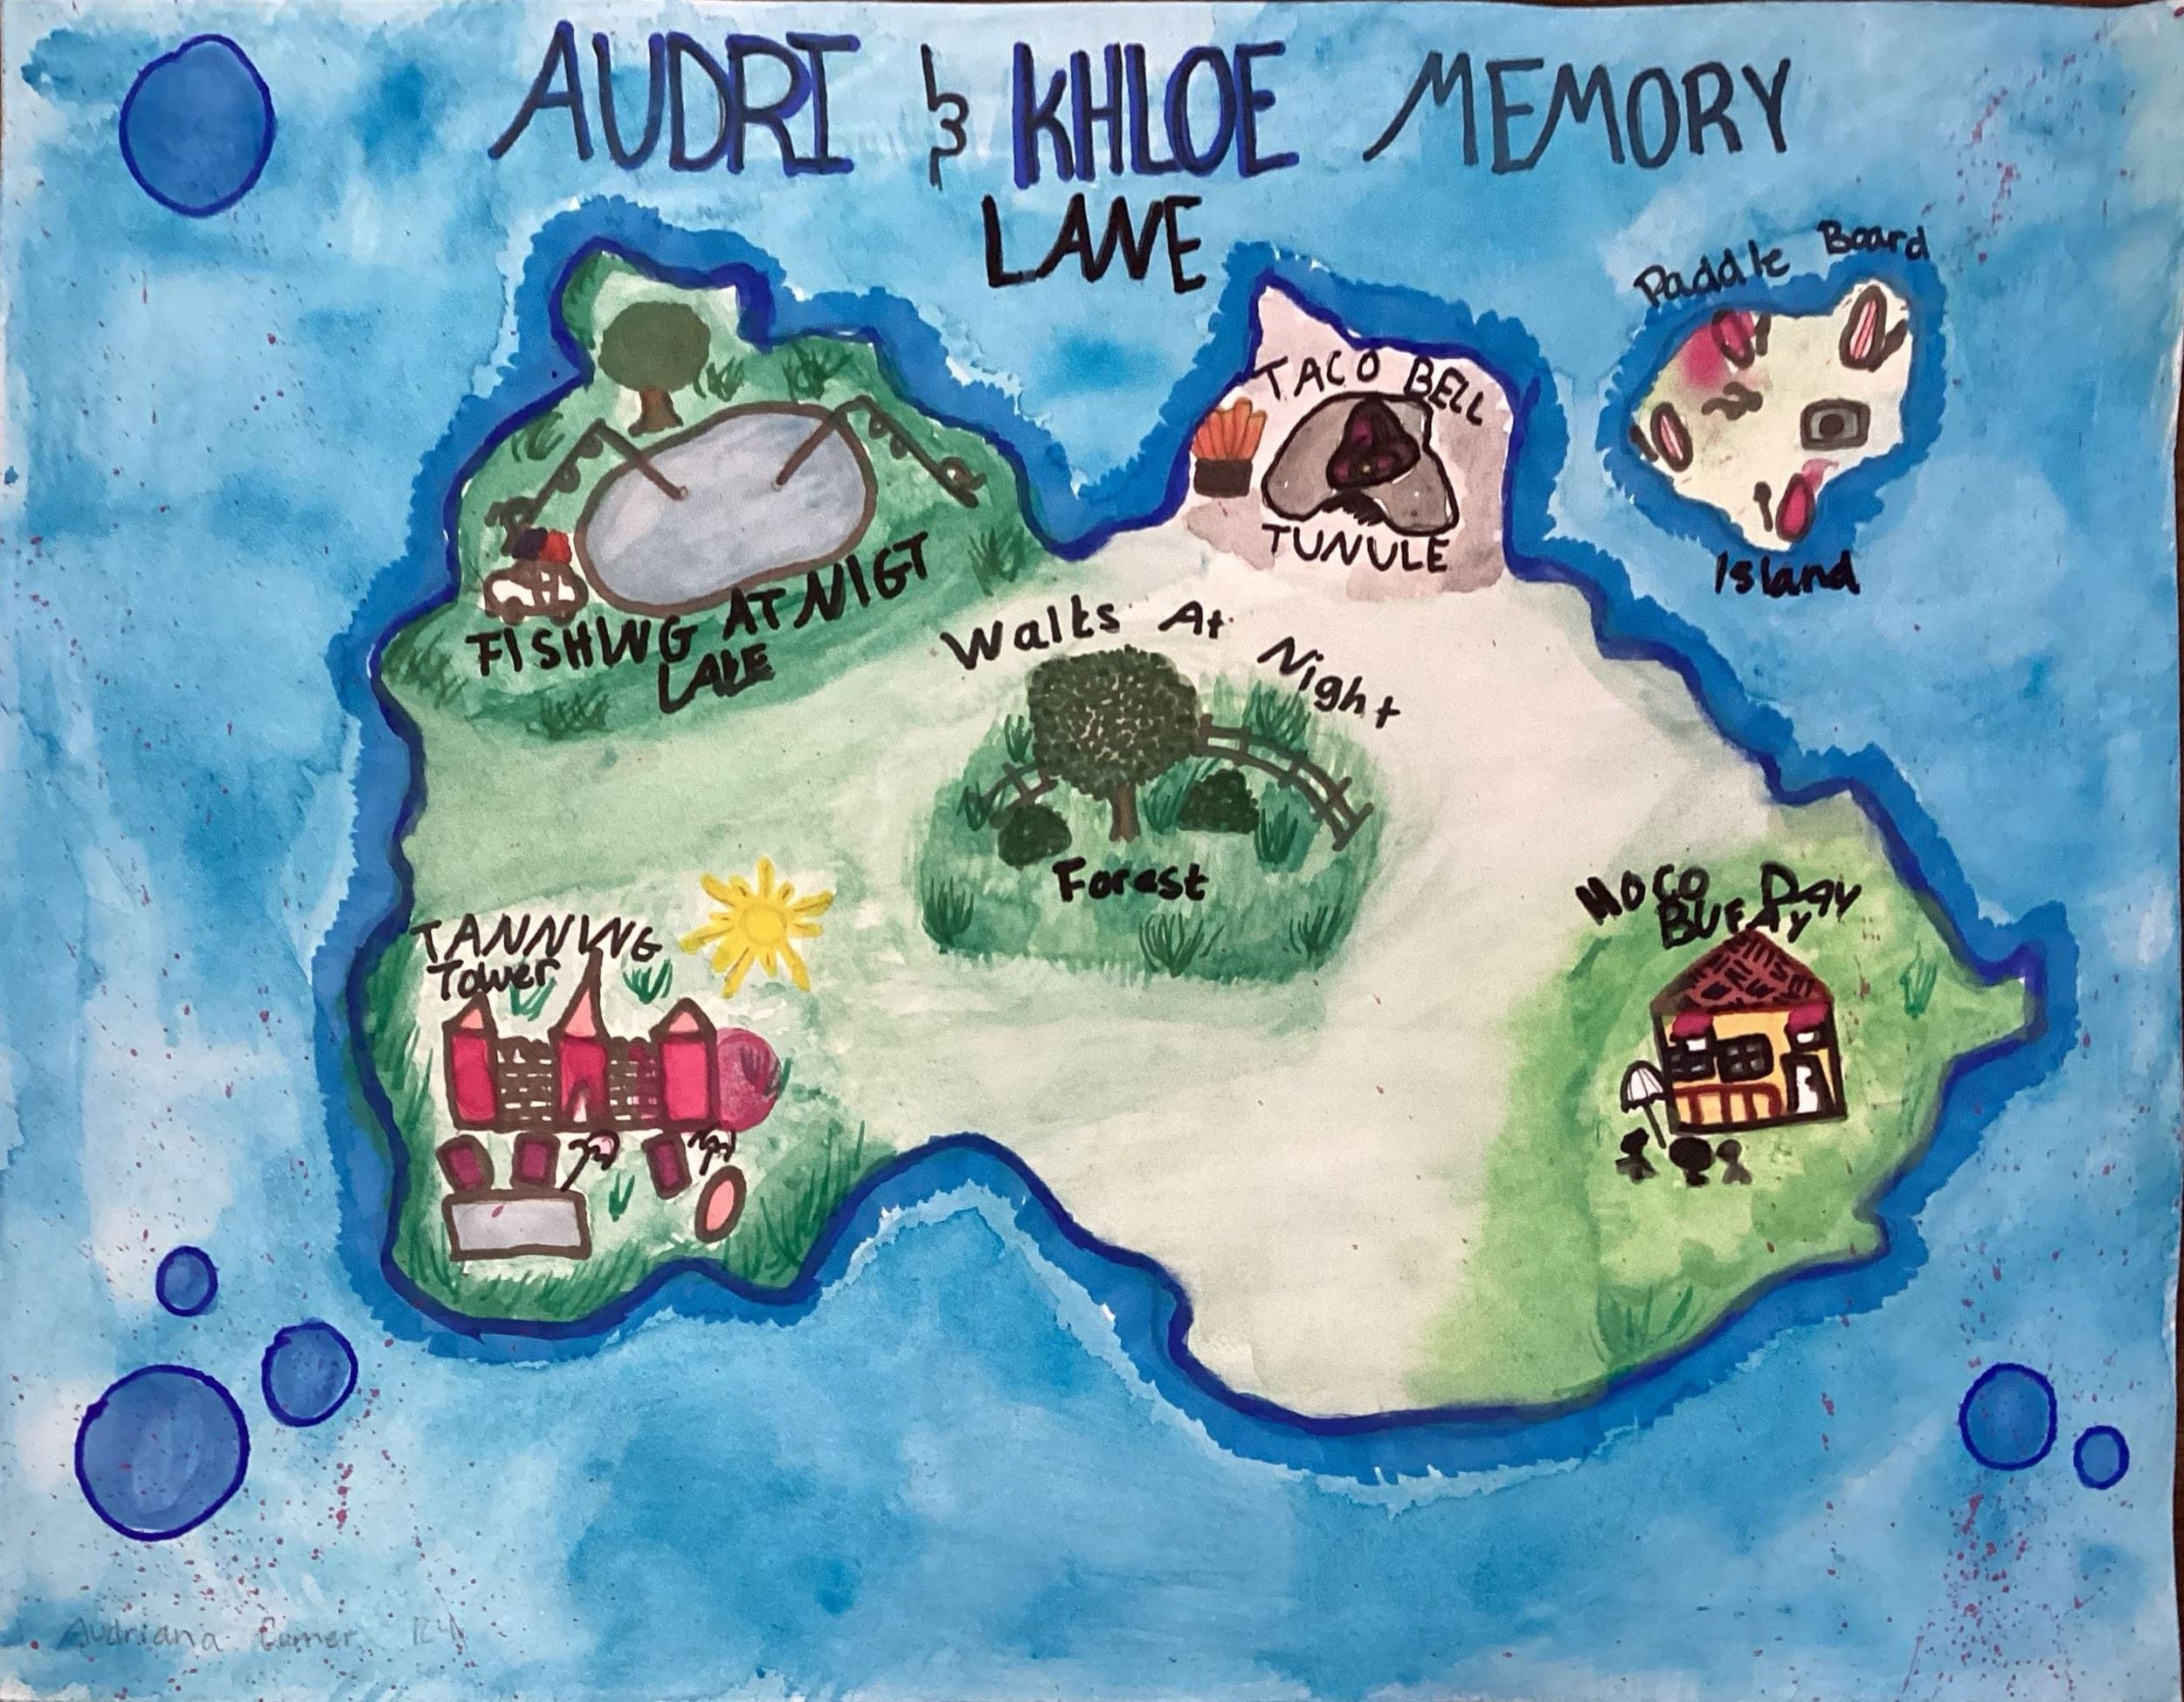 AUDRI & KHLOE MEMORY
LANE
Paddle Board
Island
TACO BELL
TUNULE
FISHING AT NIGT
LAKE
Walks At Night
Forest
TANNING
Tower
MOCO DAY
BUFAY
Audriana